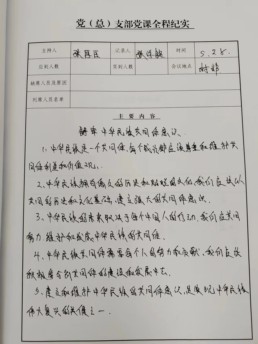 党（总）支部党课全程纪实
主持人 记录人 时间 5.28
应到人数 实到人数 会议地点
缺席人员及原因
列席人员名单
主要内容
解读中华民族共同体意识
1、中华民族是一个共同体，每个成员都应该尊重和维护共
同体利益和价值观。
2、中华民族拥有悠久的历史和灿烂的文化，我们应该以
共同的历史和文化为基础，建立强大的共同体意识。
3、中华民族的未来取决于每个中国人的行动，我们应共同
努力，维护和发展中华民族的共同体。
4、中华民族共同体需要每个人自身力量贡献，我们应该
积极参与到共同体的建设和发展中去。
5、建立和维护中华民族的共同体意识，是实现中华民族
伟大复兴的关键之一。